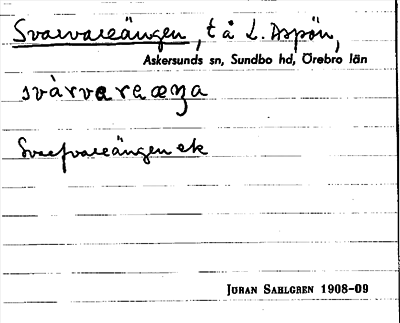 Svarvareängen, t å L. Aspön,
Askersunds sn, Sundbo hd, Örebro län
svàrvareæŋa
Svarfvareängen ek
Jöran Sahlgren 1908-09